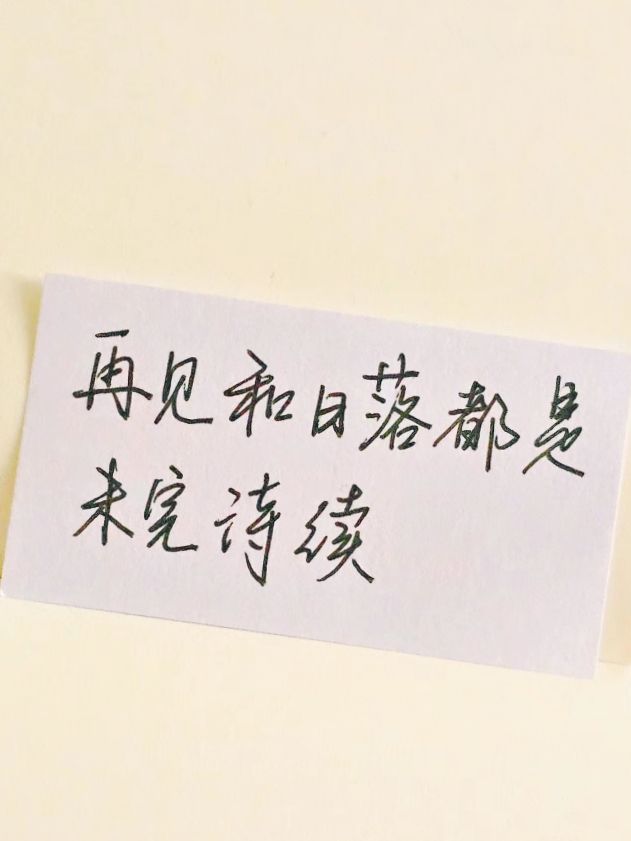 再见和日落都是
未完诗续